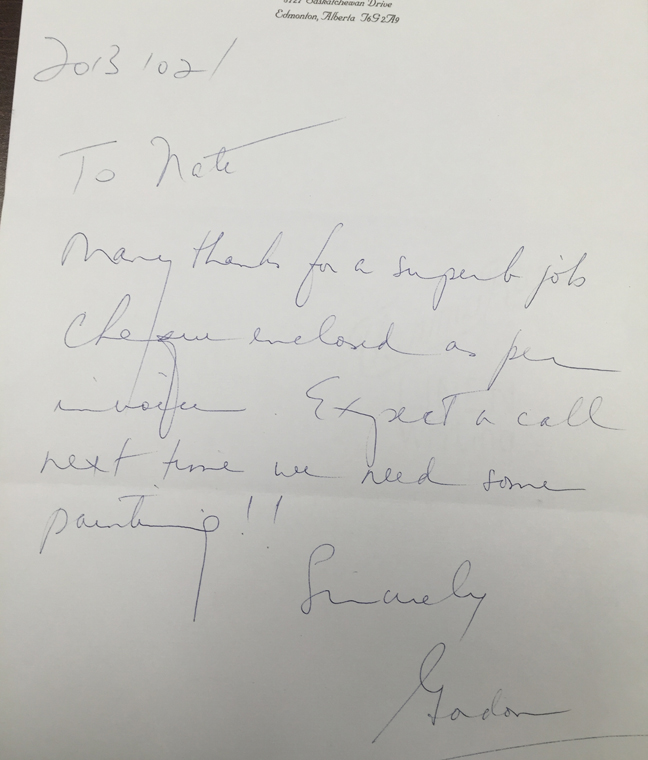 Saskatchewan Drive
Edmonton, Alberta T6G 2A9
2013 10 21
To Nate
Many thanks for a superb job
Cheque enclosed as per
invoice. Expect a call
next time we need some
painting!!
Sincerely
Gordon